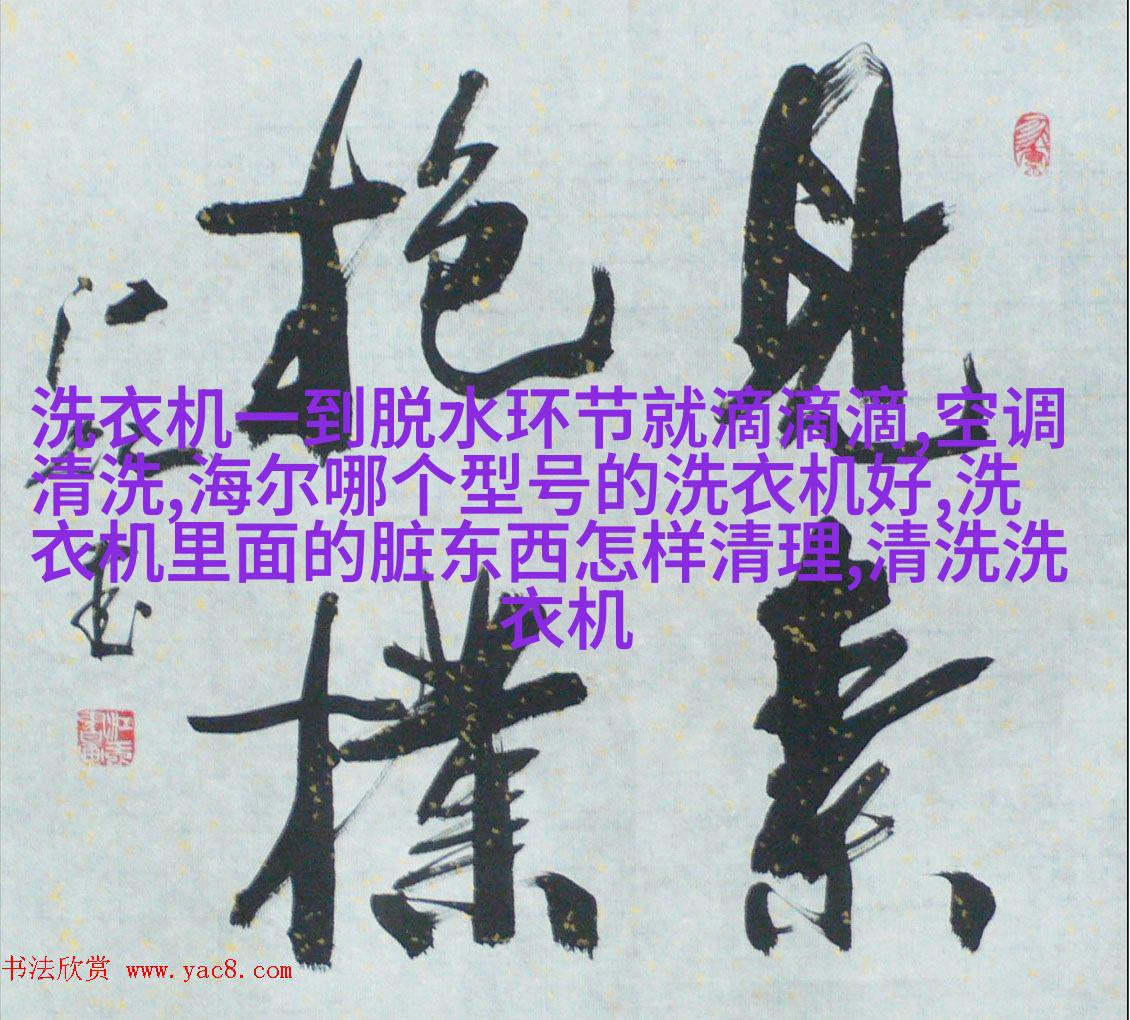 見素
抱樸
洗衣机一到脱水环节就滴滴滴,空调
清洗,海尔哪个型号的洗衣机好,洗
衣机里面的脏东西怎样清理,清洗洗
衣机
书法欣赏 www.yac8.com